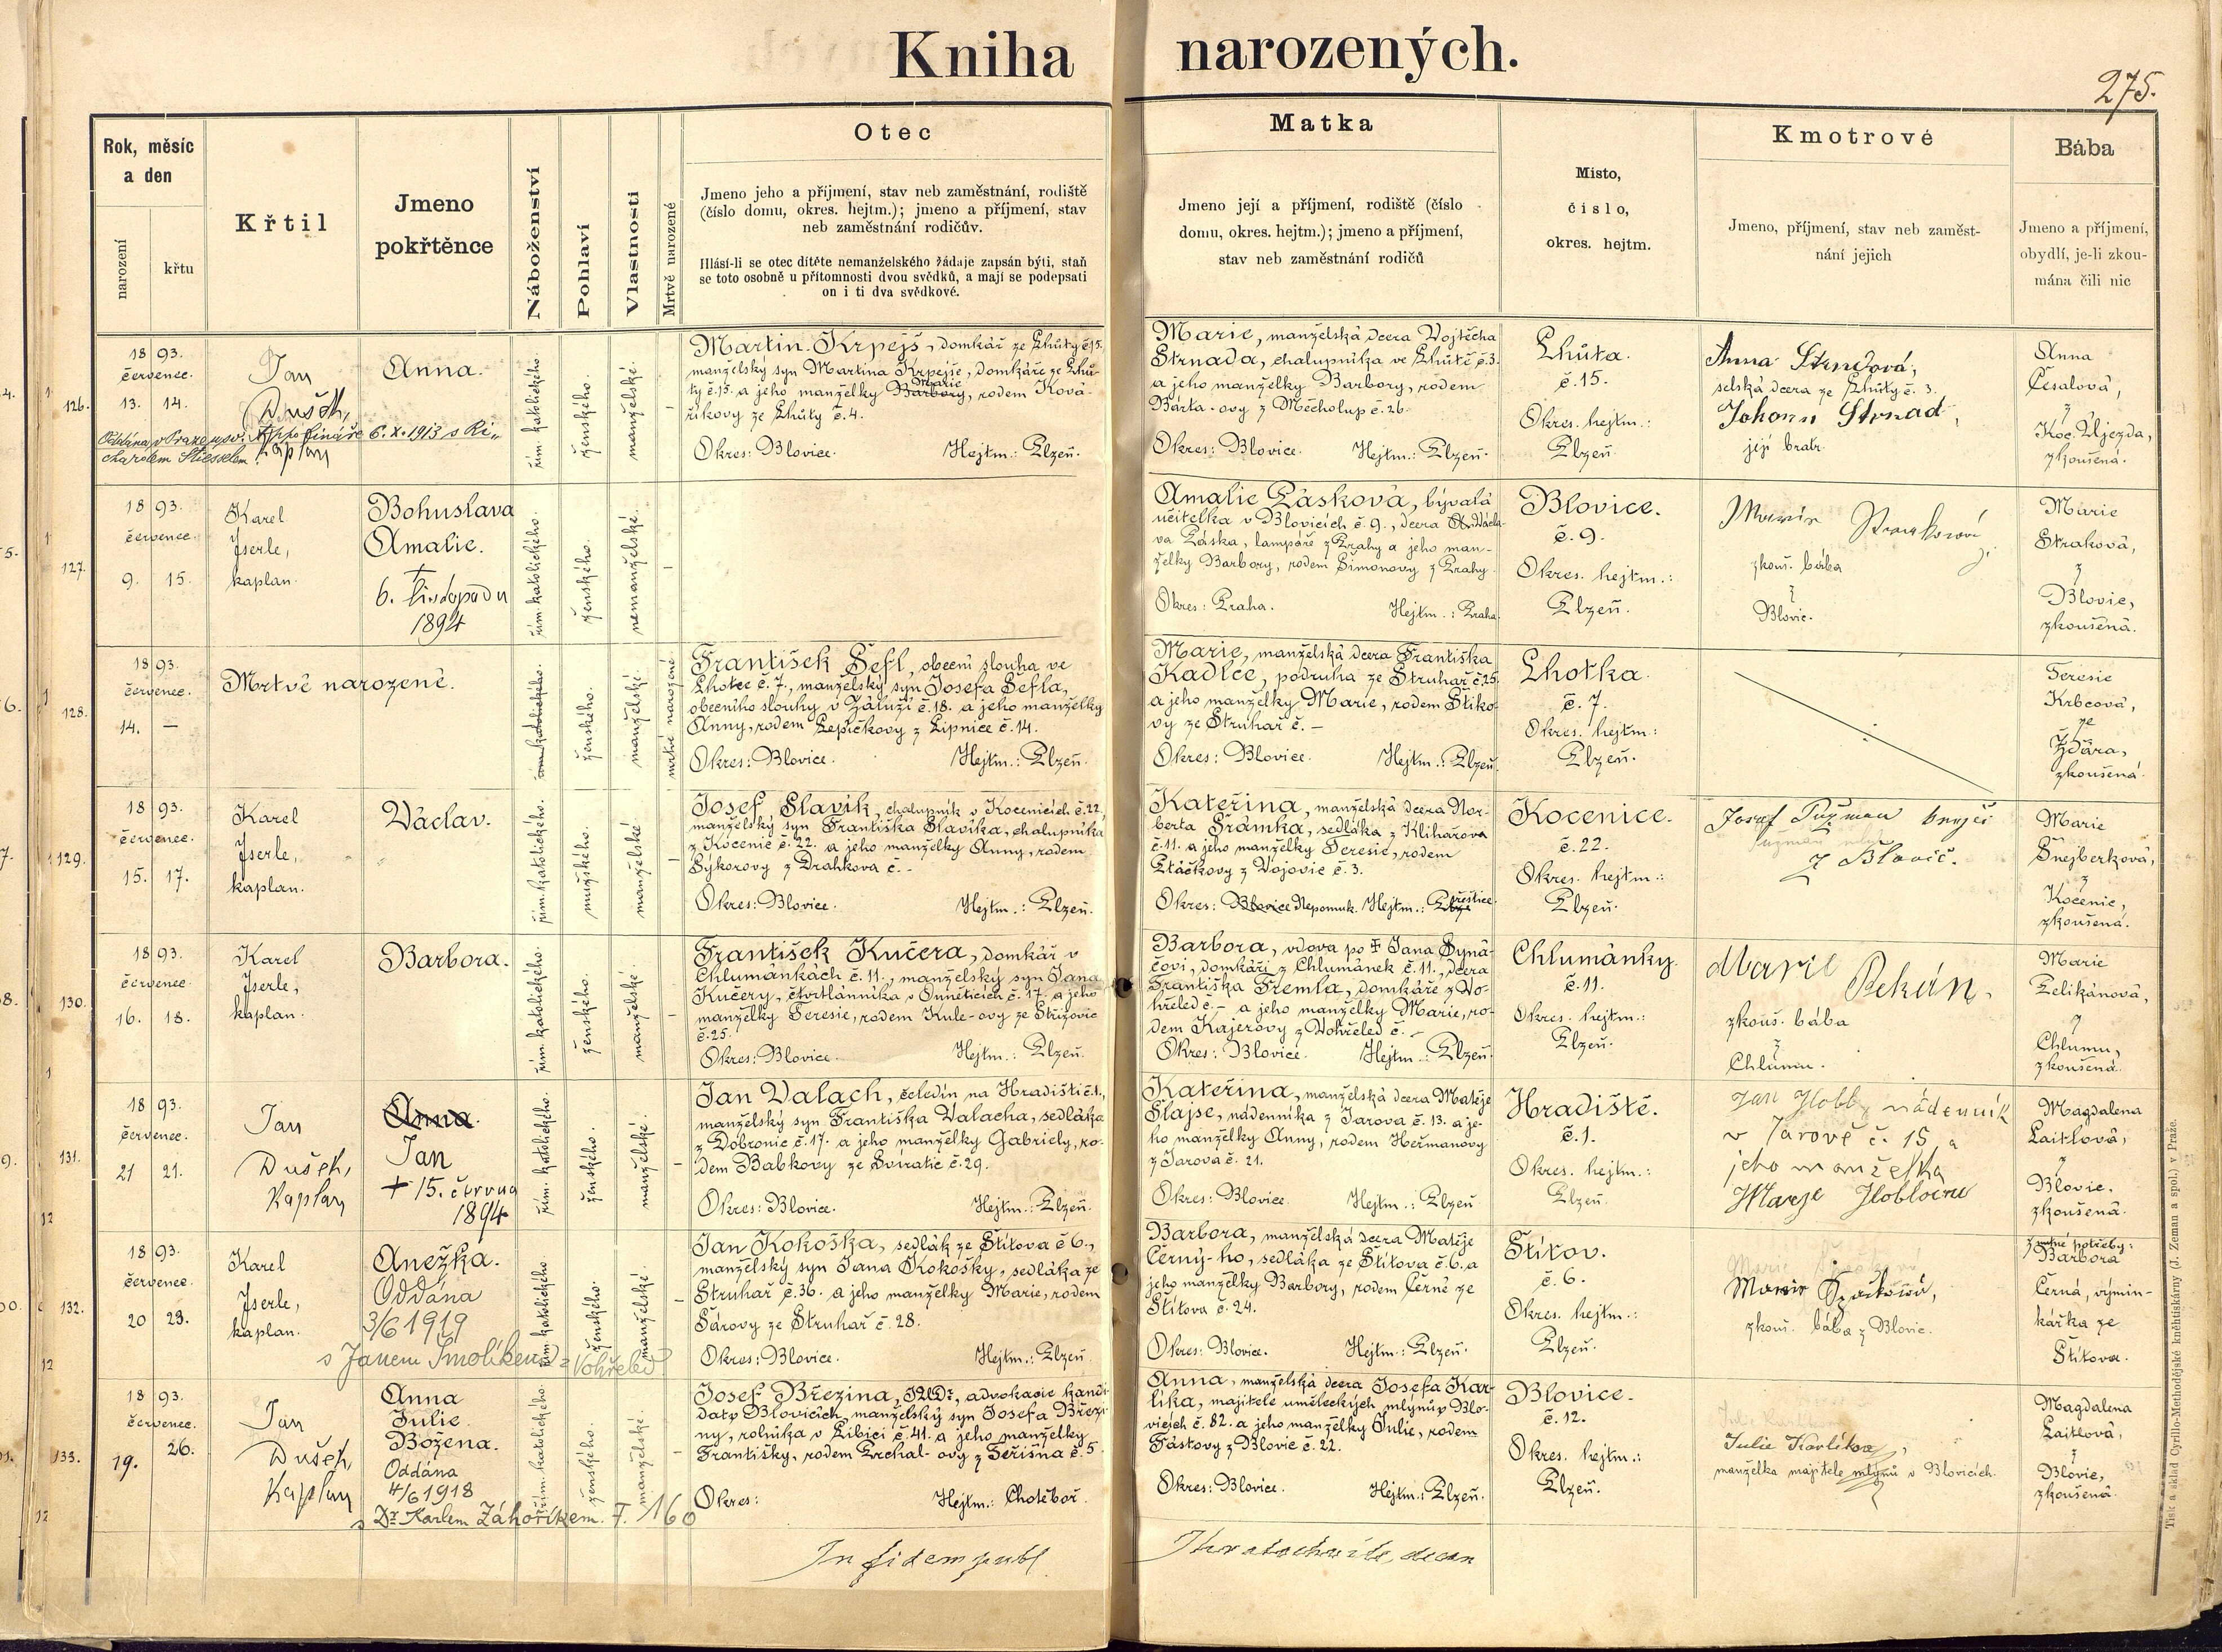 Kniha narozených.
275.
Rok, měsíc
a den
narození
křtu
Křtil
Jmeno
pokřtěnce
Náboženství
Pohlaví
Vlastnosti
Mrtvě narozené
Otec
Jmeno jeho a příjmení, stav neb zaměstnání, rodiště
(číslo domu, okres. hejtm.); jmeno a příjmení, stav
neb zaměstnání rodičův.
Hlásí-li se otec dítěte nemanželského žádaje zapsán býti, staň
se toto osobně u přítomnosti dvou svědků, a mají se podepsati
on i ti dva svědkové.
Matka
Jmeno její a příjmení, rodiště (číslo
domu, okres. hejtm.); jmeno a příjmení,
stav neb zaměstnání rodičů
Místo,
číslo,
okres. hejtm.
Kmotrové
Jmeno, příjmení, stav neb zaměst-
nání jejich
Bába
Jmeno a příjmení,
obydlí, je-li zkou-
mána čili nic
126.
18 93.
červenec.
13. 14.
Jan
Dušek,
kaplan
Anna.
6. X. 1913 s Ri-
chardem
řím. katolického.
ženského.
manželské.
Martin Krpejš, domkář ze Lhůty č. 15.
manželský syn Martina Krpejše, domkáře ze Lhů-
ty č. 15. a jeho manželky Barbory, rodem Ková-
Marie
říkovy ze Lhůty č. 4.
Okres: Blovice. Hejtm.: Plzeň.
Marie, manželská dcera Vojtěcha
Strnada, chalupníka ve Lhůtě č. 3.
a jeho manželky Barbory, rodem
Bárta-ovy z Měcholup č. 26.
Okres: Blovice. Hejtm.: Plzeň.
Lhůta.
č. 15.
Okres. hejtm.:
Plzeň.
Anna Strnadová,
selská dcera ze Lhůty č. 3.
Johann Strnad,
její bratr.
Anna
Česalová,
z
Koc. Újezda,
zkoušená.
127.
18 93.
červenec.
9. 15.
Karel
Jserle,
kaplan.
Bohuslava
Amalie.
†
6. listopadu
1894
řím. katolického.
ženského.
nemanželské.
Amalie Pásková, bývalá
učitelka v Blovicích č. 9., dcera Václa-
va Páska, lampáře z Prahy a jeho man-
želky Barbory, rodem Šimonovy z Prahy.
Okres: Praha. Hejtm.: Praha.
Blovice.
č. 9.
Okres. hejtm.:
Plzeň.
Marie
zkouš. bába
z
Blovic.
Marie
Straková,
z
Blovic,
zkoušená.
128.
18 93.
červenec.
14. —
Mrtvě narozené.
řím. katolického.
ženského.
manželské.
mrtvě narozené
František Šefl, obecní slouha ve
Lhotce č. 7., manželský syn Josefa Šefla,
obecního slouhy v Záluží č. 18. a jeho manželky
Anny, rodem Lepičkovy z Lipnice č. 14.
Okres: Blovice. Hejtm.: Plzeň.
Marie, manželská dcera Františka
Kadlce, podruha ze Struhař č. 25.
a jeho manželky Marie, rodem Štiko-
vy ze Struhař č. —
Okres: Blovice. Hejtm.: Plzeň.
Lhotka.
č. 7.
Okres. hejtm.:
Plzeň.
Teresie
Krbcová,
ze
Ždára,
zkoušená.
129.
18 93.
červenec.
15. 17.
Karel
Jserle,
kaplan.
Václav.
řím. katolického.
mužského.
manželské
Josef Slavík, chalupník v Kocenicích č. 22,
manželský syn Františka Slavíka, chalupníka
z Kocenic č. 22. a jeho manželky Anny, rodem
Sýkorovy z Drahkova č. -
Okres: Blovice. Hejtm.: Plzeň.
Kateřina, manželská dcera Nor-
berta Šrámka, sedláka z Klihařova
č. 11. a jeho manželky Teresie, rodem
Ptáčkovy z Vojovic č. 3.
Okres: Blovice Nepomuk. Hejtm.: Přeštice.
Kocenice.
č. 22.
Okres. hejtm.:
Plzeň.
Josef Pužman
z Blovic.
Marie
Šnejberková,
z
Kocenic,
zkoušená.
130.
18 93.
červenec.
16. 18.
Karel
Jserle,
kaplan.
Barbora.
řím. katolického.
ženského.
manželské.
František Kučera, domkář v
Chlumánkách č. 11., manželský syn Jana
Kučery, čtvrtlánníka v Unněticích č. 17. a jeho
manželky Teresie, rodem Kule-ovy ze Střížovic
č. 25.
Okres: Blovice. Hejtm.: Plzeň.
Barbora, vdova po † Jana Syná-
čovi, domkáři z Chlumánek č. 11., dcera
Františka Tremla, domkáře z Vo-
křeled č. - a jeho manželky Marie, ro-
dem Kajerovy z Vokřeled č. -
Okres: Blovice. Hejtm.: Plzeň.
Chlumánky.
č. 11.
Okres. hejtm.:
Plzeň.
Marie
zkouš. bába
z
Chlumu.
Marie
Pelikánová,
z
Chlumu,
zkoušená.
131.
18 93.
červenec.
21 21.
Jan
Dušek,
kaplan
Anna.
Jan
+ 15. června
1894
řím. katolického.
ženského.
manželské.
Jan Valach, čeledín na Hradišti č. 1.,
manželský syn Františka Valacha, sedláka
z Dobronic č. 17. a jeho manželky Gabriely, ro-
dem Babkovy ze Svíratic č. 29.
Okres: Blovice. Hejtm.: Plzeň.
Kateřina, manželská dcera Matěje
Šlajse, nádenníka z Jarova č. 13. a je-
ho manželky Anny, rodem Heřmanovy
z Jarova č. 21.
Okres: Blovice. Hejtm.: Plzeň
Hradiště.
č. 1.
Okres. hejtm.:
Plzeň.
Jan Hobl, nádenník
v Jarově č. 15, a
jeho manželka
Magdalena
Laitlová,
z
Blovic.
zkoušená.
132.
18 93.
červenec.
20 23.
Karel
Jserle,
kaplan.
Anežka.
Oddána
3/6 1919
s Janem Smolíkem z Vokřeled.
řím. katolického.
ženského.
manželské.
Jan Kokoška, sedlák ze Štítova č. 6.,
manželský syn Jana Kokošky, sedláka ze
Struhař č. 36. a jeho manželky Marie, rodem
Šárovy ze Struhař č. 28.
Okres: Blovice. Hejtm.: Plzeň.
Barbora, manželská dcera Matěje
Černý-ho, sedláka ze Štítova č. 6. a
jeho manželky Barbory, rodem Černé ze
Štítova č. 24.
Okres: Blovice. Hejtm.: Plzeň.
Štítov.
č. 6.
Okres. hejtm.:
Plzeň.
Marie
zkouš. bába z Blovic.
z nutné potřeby:
Barbora
Černá, výmin-
kářka ze
Štítova.
133.
18 93.
červenec.
19. 26.
Jan
Dušek,
kaplan
Anna
Julie
Božena.
Oddána
4/6 1918
s Dr. Karlem Záhoříkem. F. 160
řím. katolického.
ženského.
manželské.
Josef Březina, JUDr., advokacie kandi-
dat v Blovicích, manželský syn Josefa Březi-
ny, rolníka v Libici č. 41. a jeho manželky
Františky, rodem Prchal-ovy z Jeřišna č. 5.
Okres: Hejtm.: Chotěboř.
Anna, manželská dcera Josefa Kar-
líka, majitele uměleckých mlýnů v Blo-
vicích č. 82. a jeho manželky Julie, rodem
Fástovy z Blovic č. 22.
Okres: Blovice. Hejtm.: Plzeň.
Blovice.
č. 12.
Okres. hejtm.:
Plzeň.
Julie Karlíková,
manželka majitele mlýnů v Blovicích.
Magdalena
Laitlová,
z
Blovic,
zkoušená.
In fidem publ.
decan
Tisk a sklad Cyrillo-Methodějské knihtiskárny (J. Zeman a spol.) v Praze.